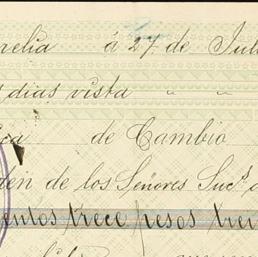 relia á 27 de Jul
s dias vista " "
ca de Cambio
den de los Señores Suc.s d
entos trece pesos trei